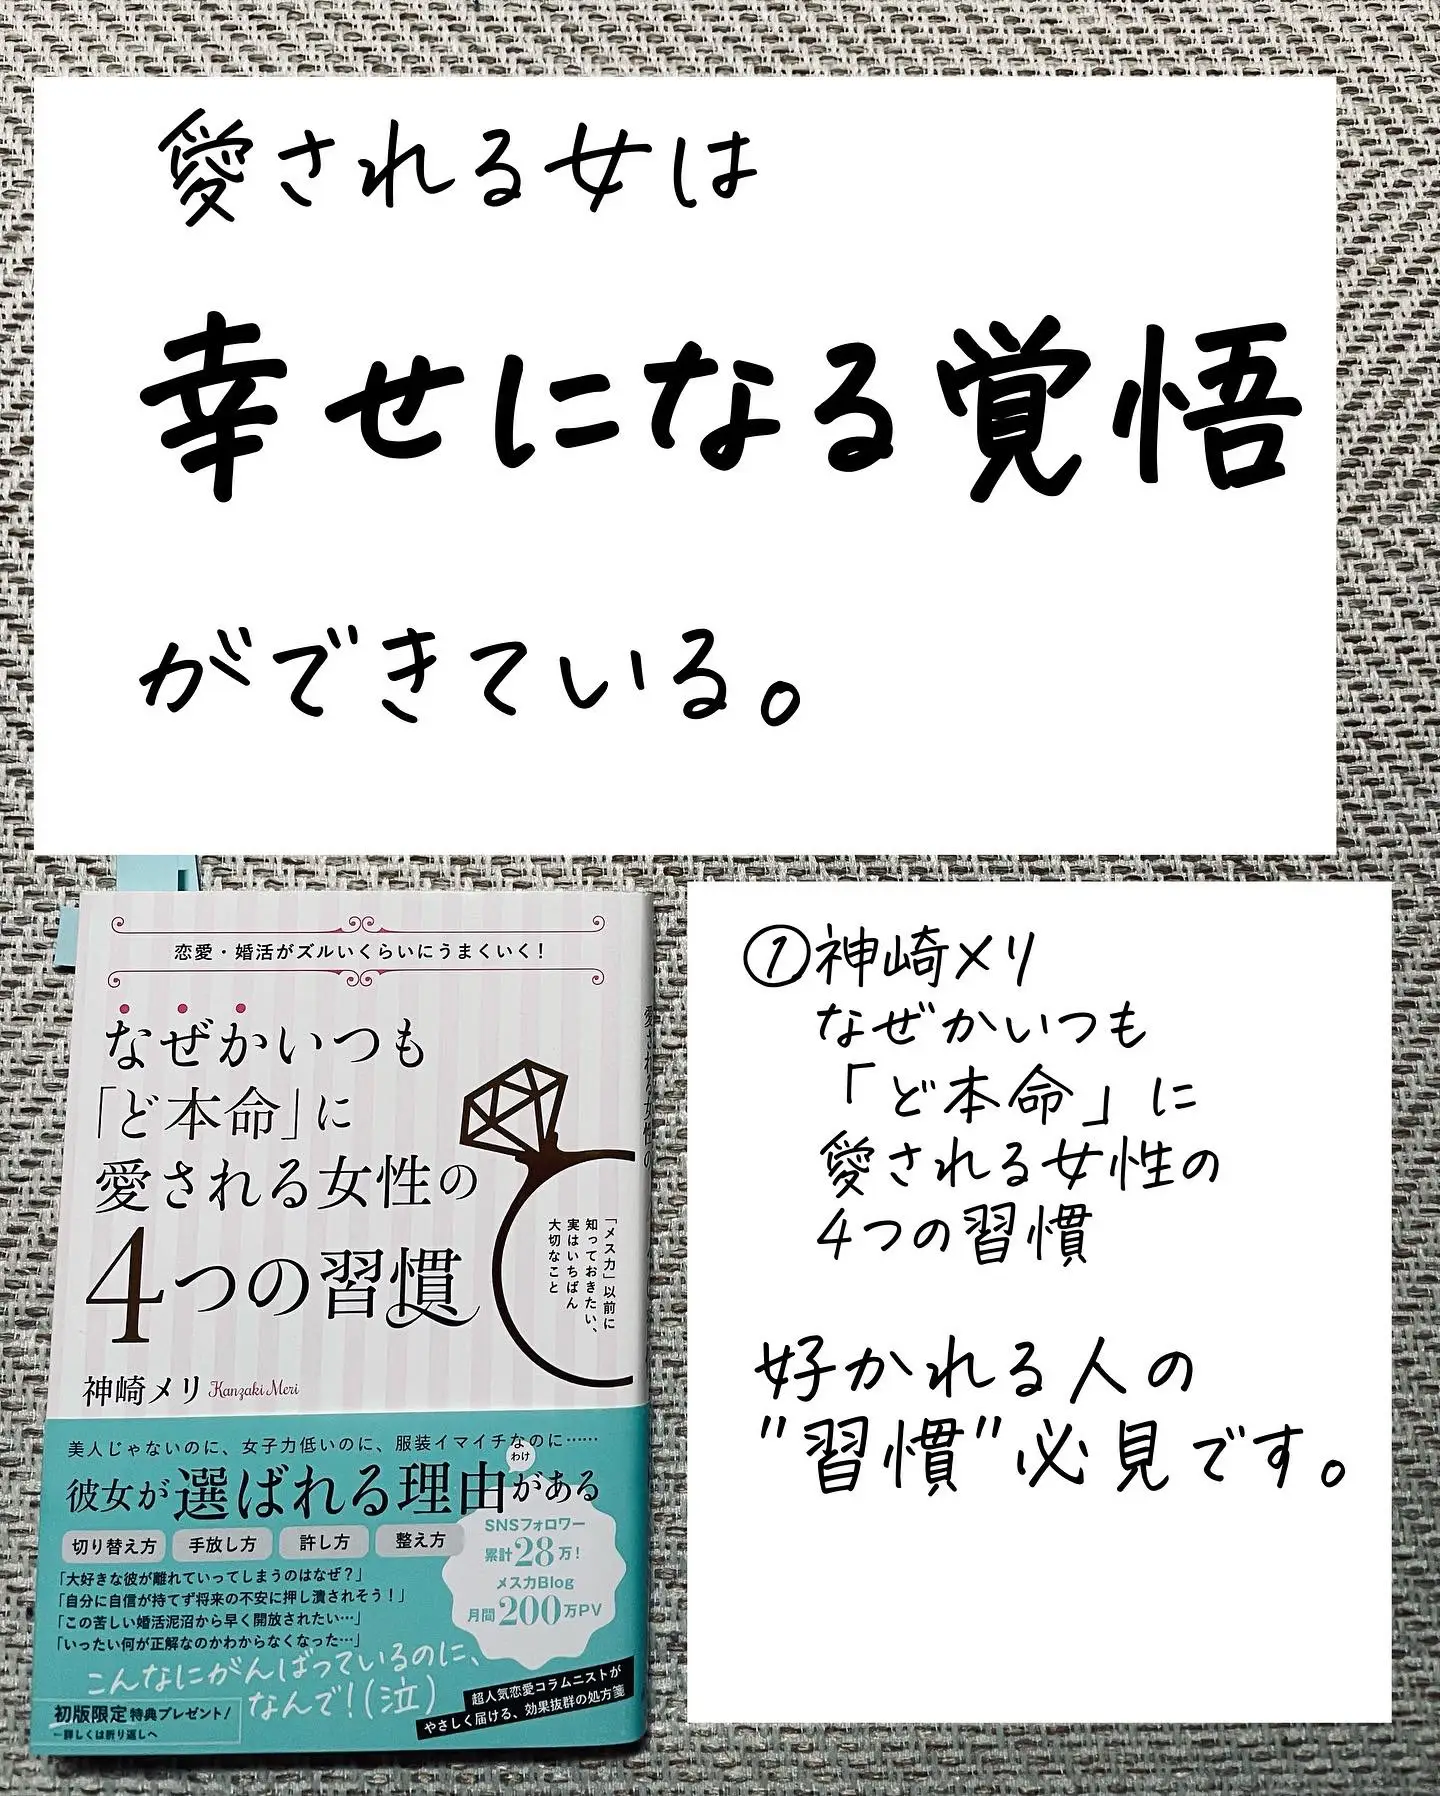 愛される女は
幸せになる覚悟
ができている。
恋愛・婚活がズルいくらいにうまくいく!
なぜかいつも
「ど本命」に
愛される女性の
4つの習慣
「メス力」以前に
知っておきたい、
実はいちばん
大切なこと
神崎メリ Kanzaki Meri
美人じゃないのに、女子力低いのに、服装イマイチなのに……
わけ
彼女が選ばれる理由がある
切り替え方 手放し方 許し方 整え方
SNSフォロワー
累計28万!
メス力Blog
月間200万PV
「大好きな彼が離れていってしまうのはなぜ?」
「自分に自信が持てず将来の不安に押し潰されそう!」
「この苦しい婚活泥沼から早く開放されたい…」
「いったい何が正解なのかわからなくなった…」
こんなにがんばっているのに、
なんで!(泣)
初版限定特典プレゼント!
←詳しくは折り返しへ
超人気恋愛コラムニストが
やさしく届ける、効果抜群の処方箋
①神崎メリ
なぜかいつも
「ど本命」に
愛される女性の
4つの習慣
好かれる人の
"習慣"必見です。